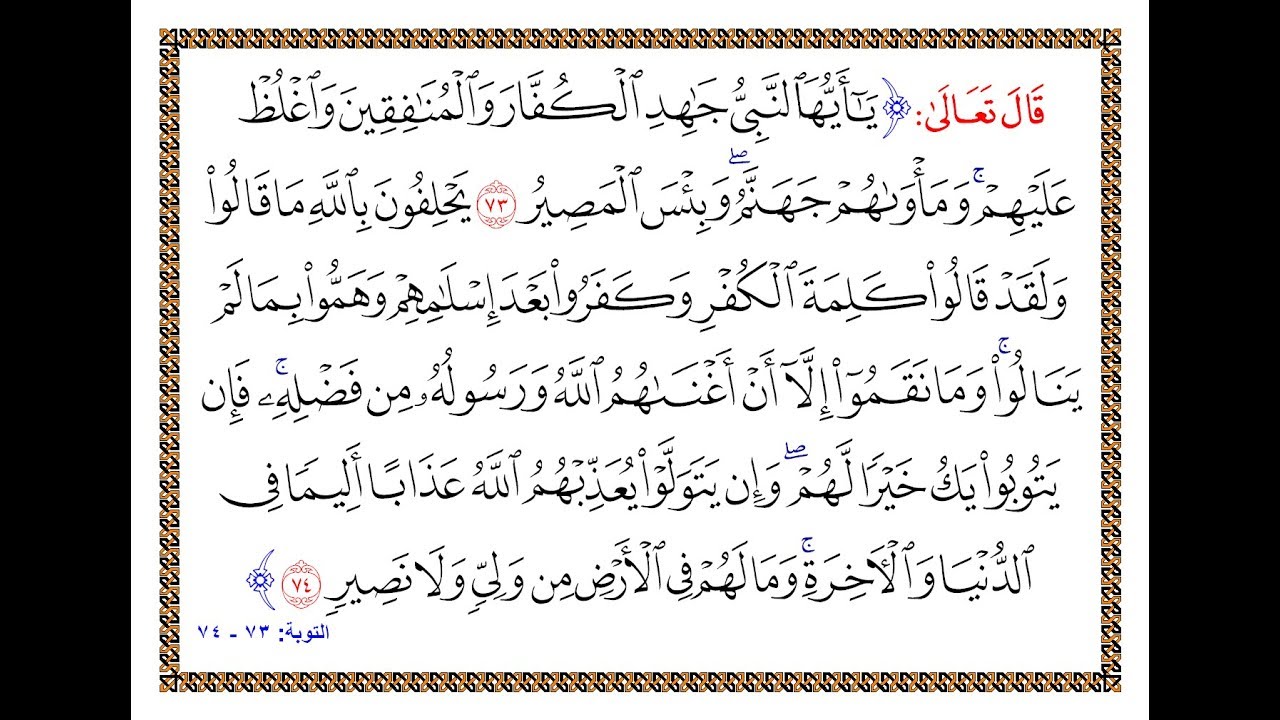 قَالَ تَعَالَىٰ: ﴿ يَـٰٓأَيُّهَا ٱلنَّبِىُّ جَـٰهِدِ ٱلْكُفَّارَ وَٱلْمُنَـٰفِقِينَ وَٱغْلُظْ
عَلَيْهِمْ ۚ وَمَأْوَىٰهُمْ جَهَنَّمُ ۖ وَبِئْسَ ٱلْمَصِيرُ ٧٣ يَحْلِفُونَ بِٱللَّهِ مَا قَالُوا۟
وَلَقَدْ قَالُوا۟ كَلِمَةَ ٱلْكُفْرِ وَكَفَرُوا۟ بَعْدَ إِسْلَـٰمِهِمْ وَهَمُّوا۟ بِمَا لَمْ
يَنَالُوا۟ ۚ وَمَا نَقَمُوٓا۟ إِلَّآ أَنْ أَغْنَىٰهُمُ ٱللَّهُ وَرَسُولُهُۥ مِن فَضْلِهِۦ ۚ فَإِن
يَتُوبُوا۟ يَكُ خَيْرًا لَّهُمْ ۖ وَإِن يَتَوَلَّوْا۟ يُعَذِّبْهُمُ ٱللَّهُ عَذَابًا أَلِيمًا فِى
ٱلدُّنْيَا وَٱلْـَٔاخِرَةِ ۚ وَمَا لَهُمْ فِى ٱلْأَرْضِ مِن وَلِىٍّ وَلَا نَصِيرٍ ٧٤ ﴾
التوبة: ٧٣ - ٧٤